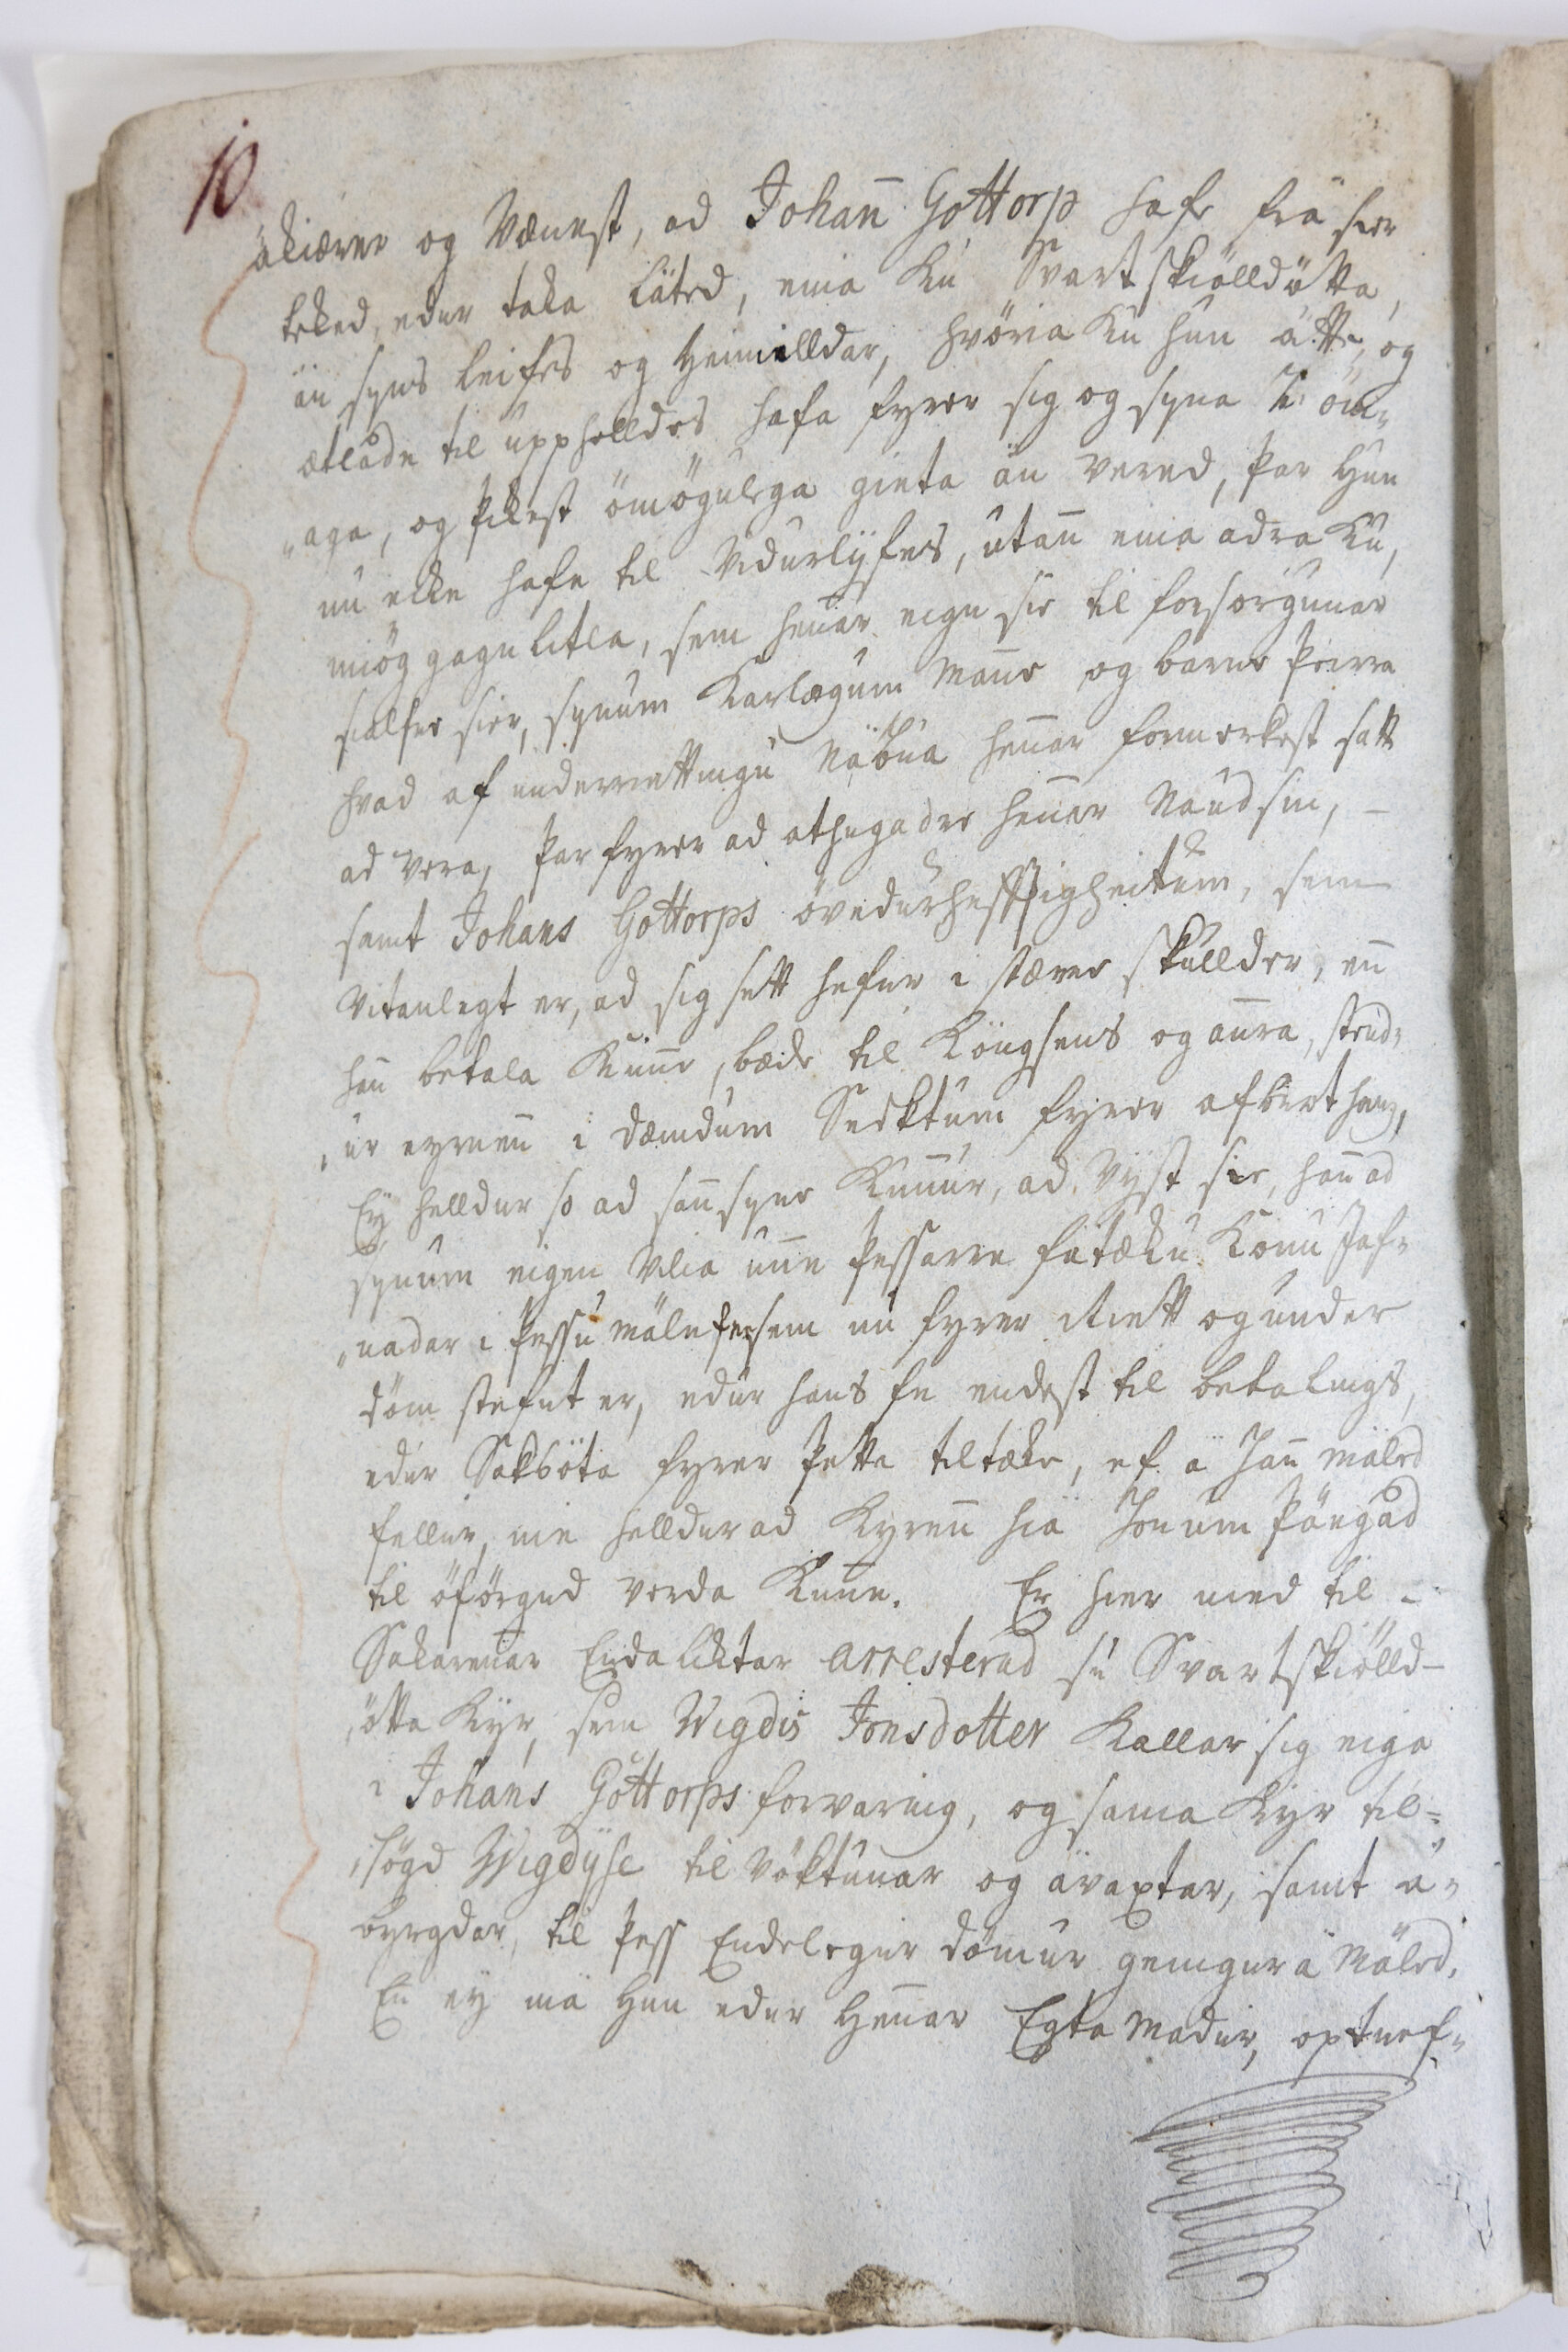 10
ákiærer og Vænest, ad Johan̄ Gottorp hafe frä sier
teked, edur taka Läted, eina Kú Svartskiölldötta,
än syns leifes og Heimilldar, hvöria Ku hun ätte, og
ætlade til uppholldes hafa fyrer sig og syna 2 öm-
„aga, og þikest ömögulega gieta än vered, þar Hun
nu ecke hafe til Vidurlyfes, utan̄ eina adra Ku,
miög gagnlitla, sem hen̄ar eign sie til forsorgunar
sialfre sier, synum Karlægum Man̄e og barne þeirra
hvad af underrettingu Näbúa hen̄ar formerkest satt
ad vera, þar fyrer ad athugadre hen̄ar Naudsin, -
samt Johans Gottorps övedurheffigheitum, sem
Vitanlegt er, ad sig sett hefur i stærre skullder, en̄
han̄ betala Kun̄e, bæde til Köngsens og an̄ra, stend-
„ur eyrnen̄ i dæmdum Sektum fyrer afbrot hans,
Ey helldur so ad san̄syne Kun̄ur, ad Vijst sie, han̄ ad
synum eigen Vilia un̄e þessarre fatæku Konu Jaf-
„nadar i þessu mäle sem nú fyrer Riett og under
döm stefnt er, edur hans fe endest til betalings,
edur Sakböta fyrer þetta tiltæke, ef ä Han̄ mäled
fellur, nie helldur ad Kyren̄ hiä honum þängad
til öförgud verda Kun̄e. Er hier med til -
Sakaren̄ar Endaliktar arresterud sú Svartskiölld-
„ötta Kyr, sem Wigdis Jonsdotter Kallar sig eiga
i Johans Gottorps forvaring, og sama Kyr til-
„sögd Wigdyse til Vöktunar og ävaxtar, samt ä-
byrgdar, til þess Endelegur dömur geingur ä Mäled.
En ey mä Hun edur Hen̄ar Egta Madur, optnef-